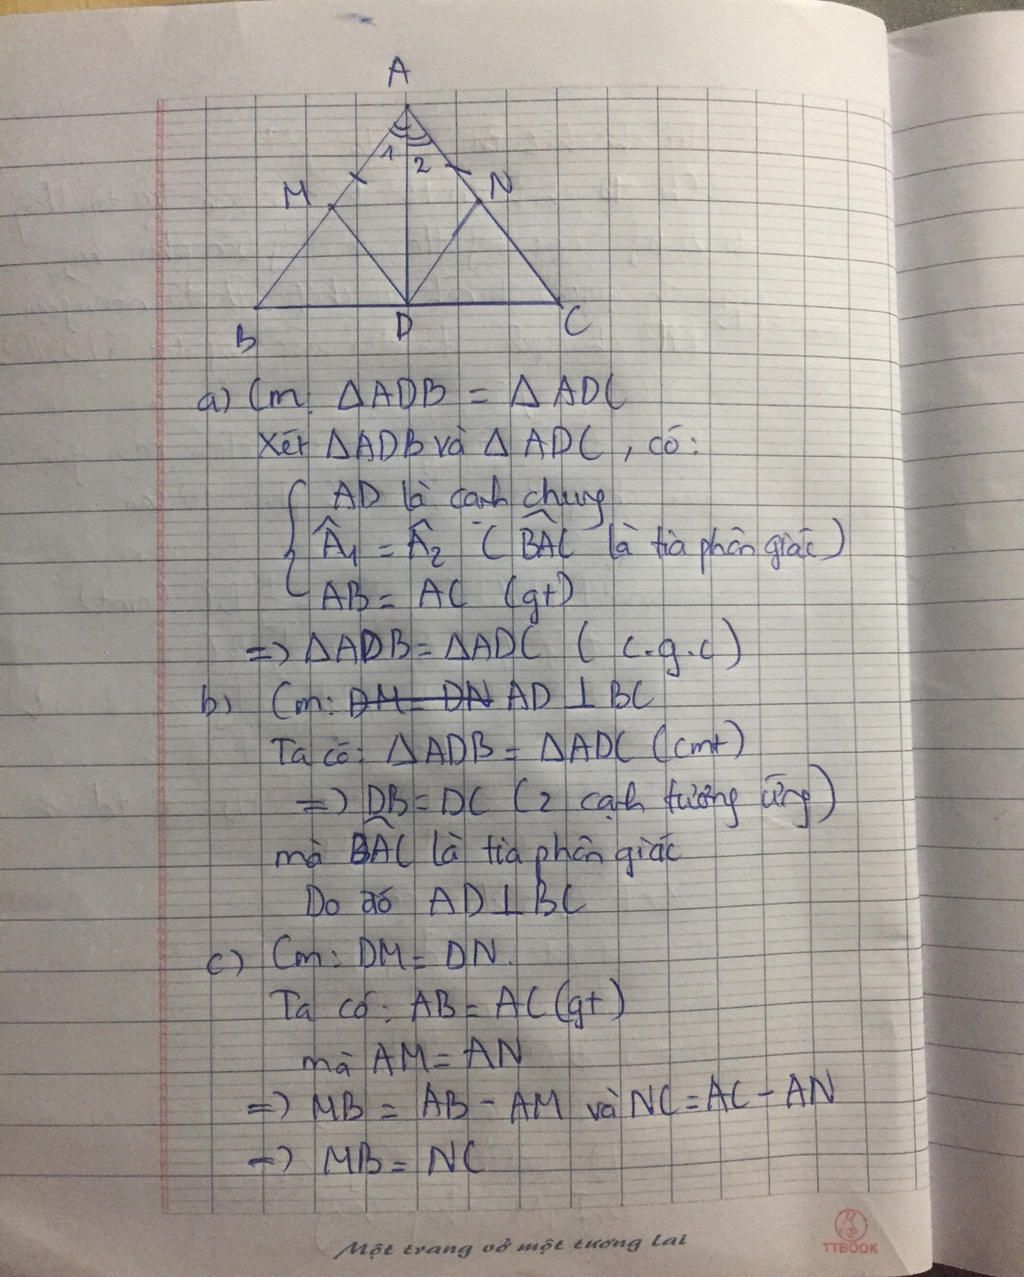 A
1
2
M
N
B
D
C
a) Cm: ΔADB = ΔADC
Xét ΔADB và ΔADC, có:
AD là cạnh chung
Â₁ = Â₂ (B̂AC là tia phân giác)
AB = AC (gt)
=> ΔADB = ΔADC (c.g.c)
b) Cm: DM = DN AD ⊥ BC
Ta có: ΔADB = ΔADC (cmt)
=> DB = DC (2 cạnh tương ứng)
mà B̂AC là tia phân giác
Do đó AD ⊥ BC
c) Cm: DM = DN.
Ta có: AB = AC (gt)
mà AM = AN
=> MB = AB - AM và NC = AC - AN
=> MB = NC
Một trang vở một tương lai
TTBOOK